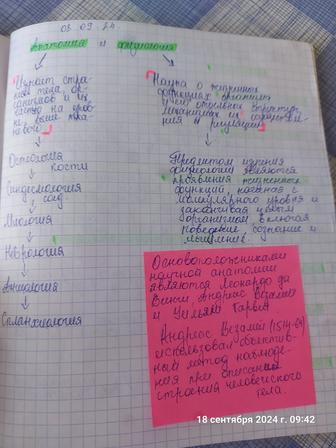 03.09.24
Анатомия и физиология
Изучает стра-
ние тела, ор-
ганизмов и их
частью на уров-
не выше тка-
невой
Остеология
кости
Синдесмология
соед.
Миология
Неврология
Ангиология
Спланхнология
Наука о жизненных
функциях организма
и его отдельных структур
механизмах их осуществле-
ния и регуляции
Предметом изучения
физиологии являются
проявления жизненных
функций, начиная с
молекулярного уровня и
заканчивая целым
организмом включая
поведение, сознание и
мышление.
Основоположниками
научной анатомии
являются Леонардо да
Винчи, Андреас Везалий
и Уильям Гарвей
Андреас Везалий (1514-64)
использовал объектив-
ный метод наблюде-
ния при описании
строения человеческого
тела.
18 сентября 2024 г. 09:42